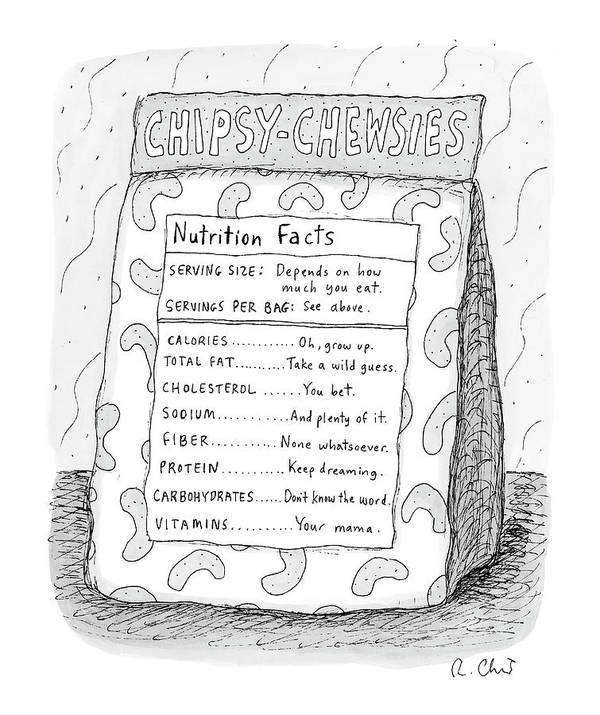 CHIPSY-CHEWSIES
Nutrition Facts
SERVING SIZE: Depends on how
much you eat.
SERVINGS PER BAG: See above.
CALORIES............Oh, grow up.
TOTAL FAT...........Take a wild guess.
CHOLESTEROL......You bet.
SODIUM...........And plenty of it.
FIBER..........None whatsoever.
PROTEIN..........Keep dreaming.
CARBOHYDRATES......Don't know the word.
VITAMINS..........Your mama.
R. Ch